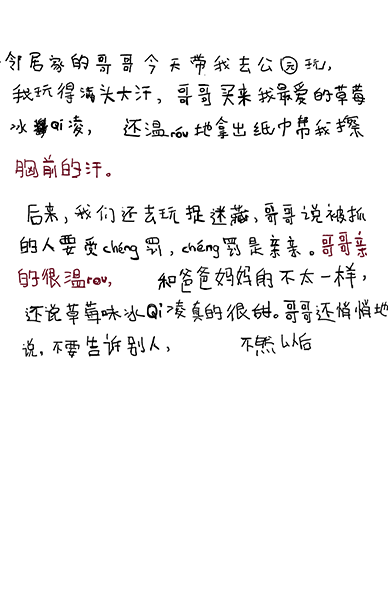 邻居家的哥哥今天带我去公园玩，
我玩得满头大汗，哥哥买来我最爱的草莓
冰Qi凌，还温róu地拿出纸巾帮我擦
胸前的汗。
后来，我们还去玩捉迷藏，哥哥说被抓
的人要受chéng罚，chéng罚是亲亲。哥哥亲
的很温rou，和爸爸妈妈的不太一样，
还说草莓味冰Qi凌真的很甜。哥哥还悄悄地
说，不要告诉别人，不然以后